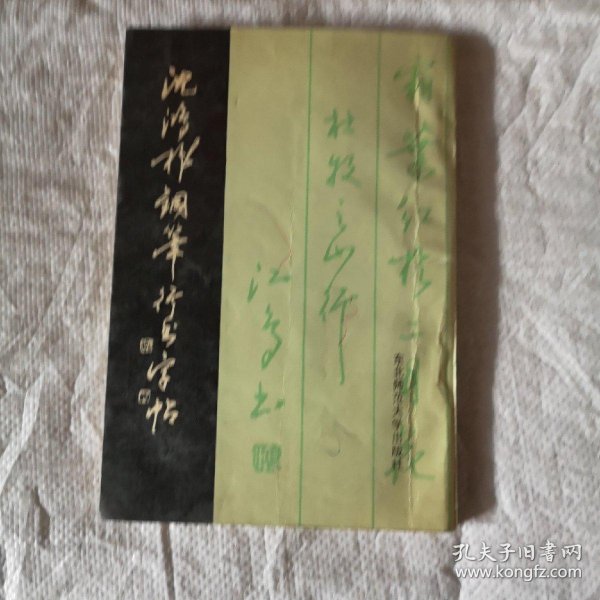 沈鸿根钢笔行书字帖
霜叶红于二月花
杜牧之山行
江鸟书
东北师范大学出版社
孔夫子旧书网
www.kongfz.com